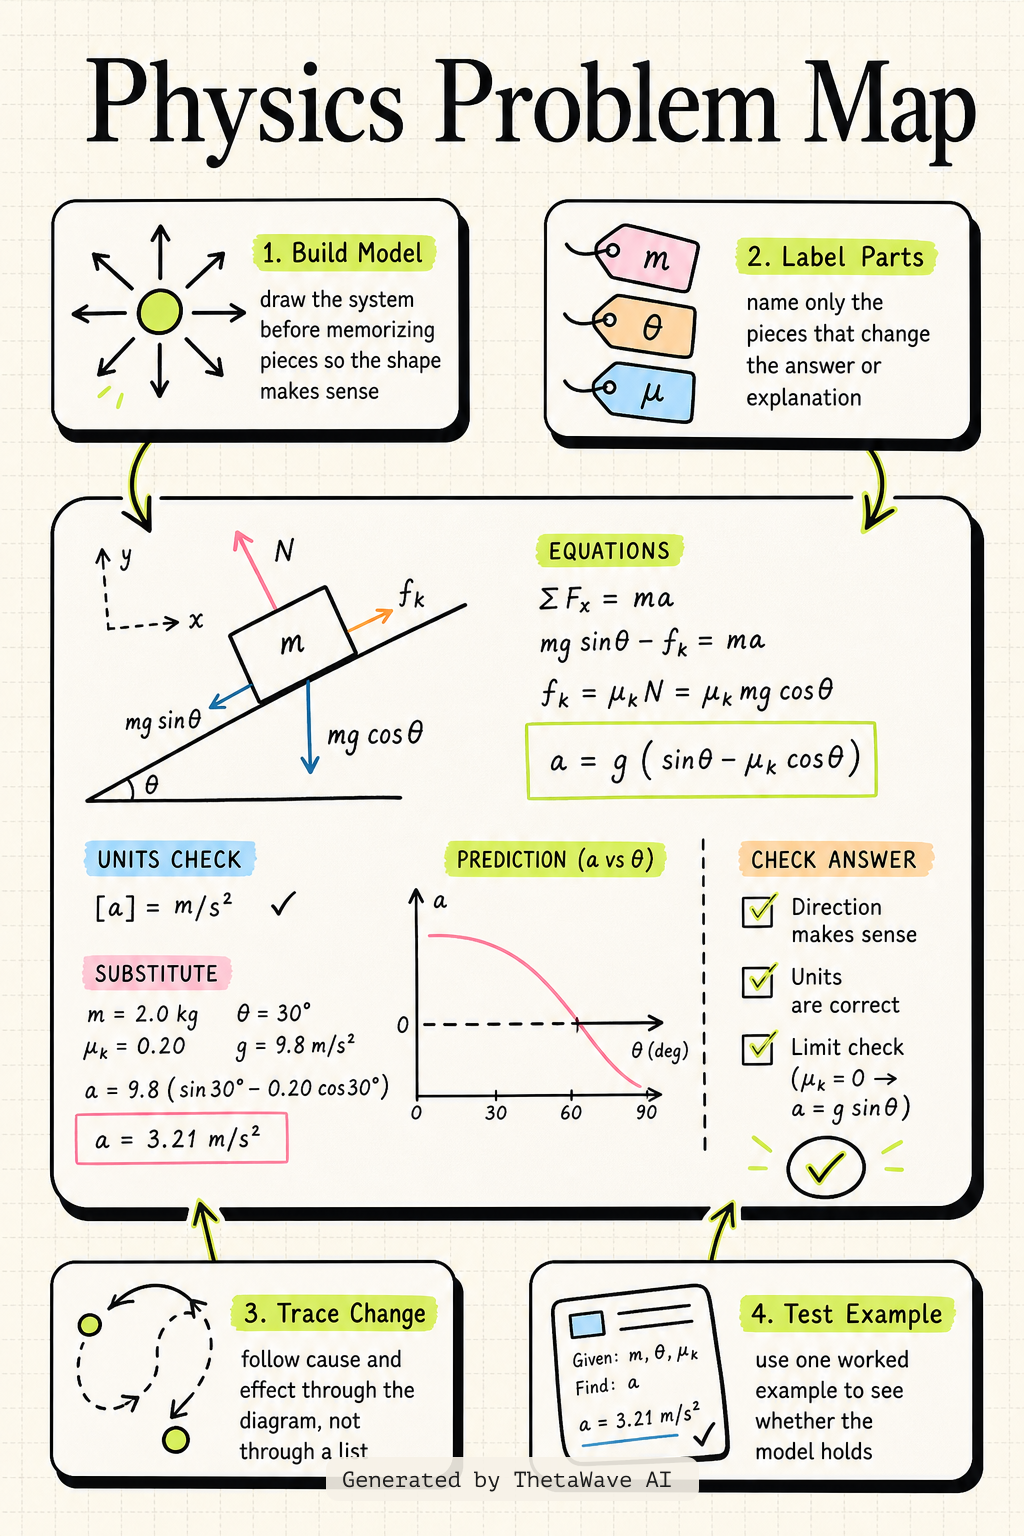 Physics Problem Map
1. Build Model
draw the system
before memorizing
pieces so the shape
makes sense
m
θ
μ
2. Label Parts
name only the
pieces that change
the answer or
explanation
y
x
N
f_k
m
mg sinθ
mg cosθ
θ
EQUATIONS
ΣF_x = ma
mg sinθ – f_k = ma
f_k = μ_k N = μ_k mg cosθ
a = g ( sinθ – μ_k cosθ )
UNITS CHECK
[a] = m/s² ✓
SUBSTITUTE
m = 2.0 kg θ = 30°
μ_k = 0.20 g = 9.8 m/s²
a = 9.8 ( sin 30° – 0.20 cos 30° )
a = 3.21 m/s²
PREDICTION (a vs θ)
a
0
θ (deg)
0 30 60 90
CHECK ANSWER
Direction
makes sense
Units
are correct
Limit check
(μ_k = 0 →
a = g sinθ)
3. Trace Change
follow cause and
effect through the
diagram, not
through a list
Given: m, θ, μ_k
Find: a
a = 3.21 m/s²
4. Test Example
use one worked
example to see
whether the
model holds
Generated by ThetaWave AI